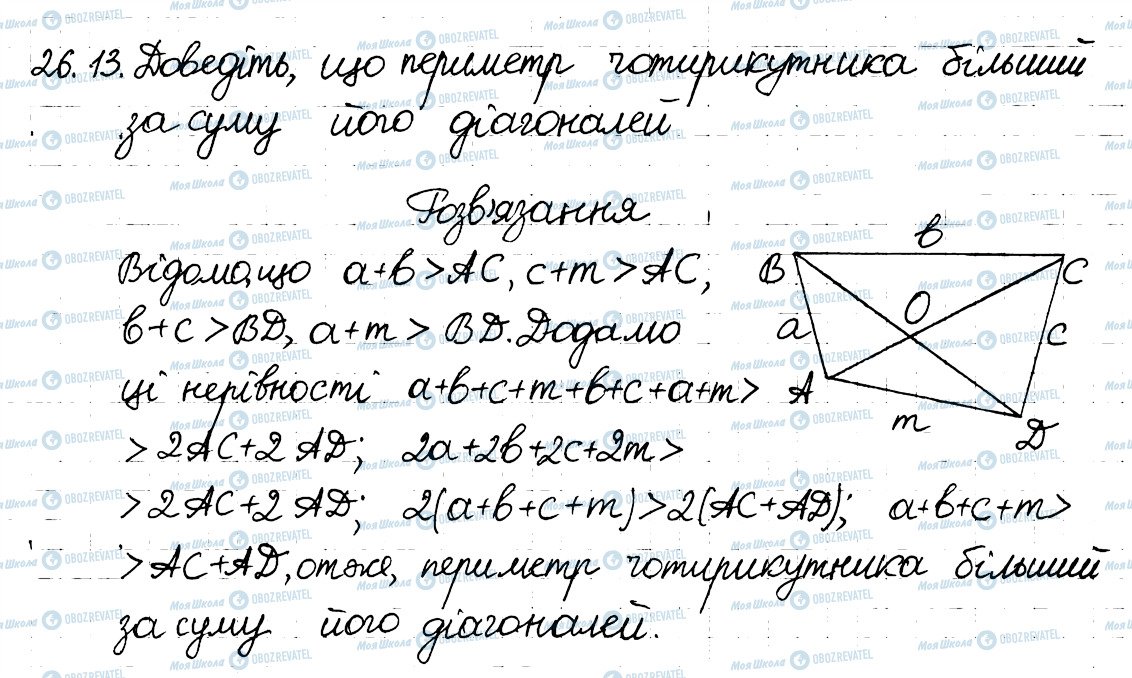 26.13. Доведіть, що периметр чотирикутника більший
за суму його діагоналей
Розв'язання
Відомо, що a+b>AC, c+m>AC,
b+c>BD, a+m>BD. Додамо
ці нерівності a+b+c+m+b+c+a+m>
>2AC+2AD; 2a+2b+2c+2m>
>2AC+2AD; 2(a+b+c+m)>2(AC+AD); a+b+c+m>
>AC+AD, отже, периметр чотирикутника більший
за суму його діагоналей.
b
B
C
O
a
c
A
m
D
МояШкола OBOZREVATEL